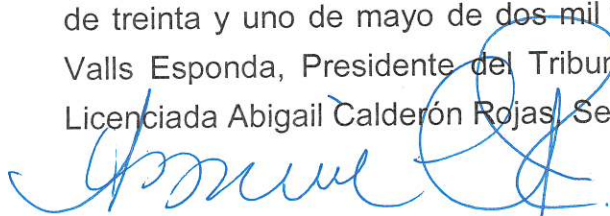 de treinta y uno de mayo de dos mil
Valls Esponda, Presidente del Tribun
Licenciada Abigail Calderón Rojas, Se